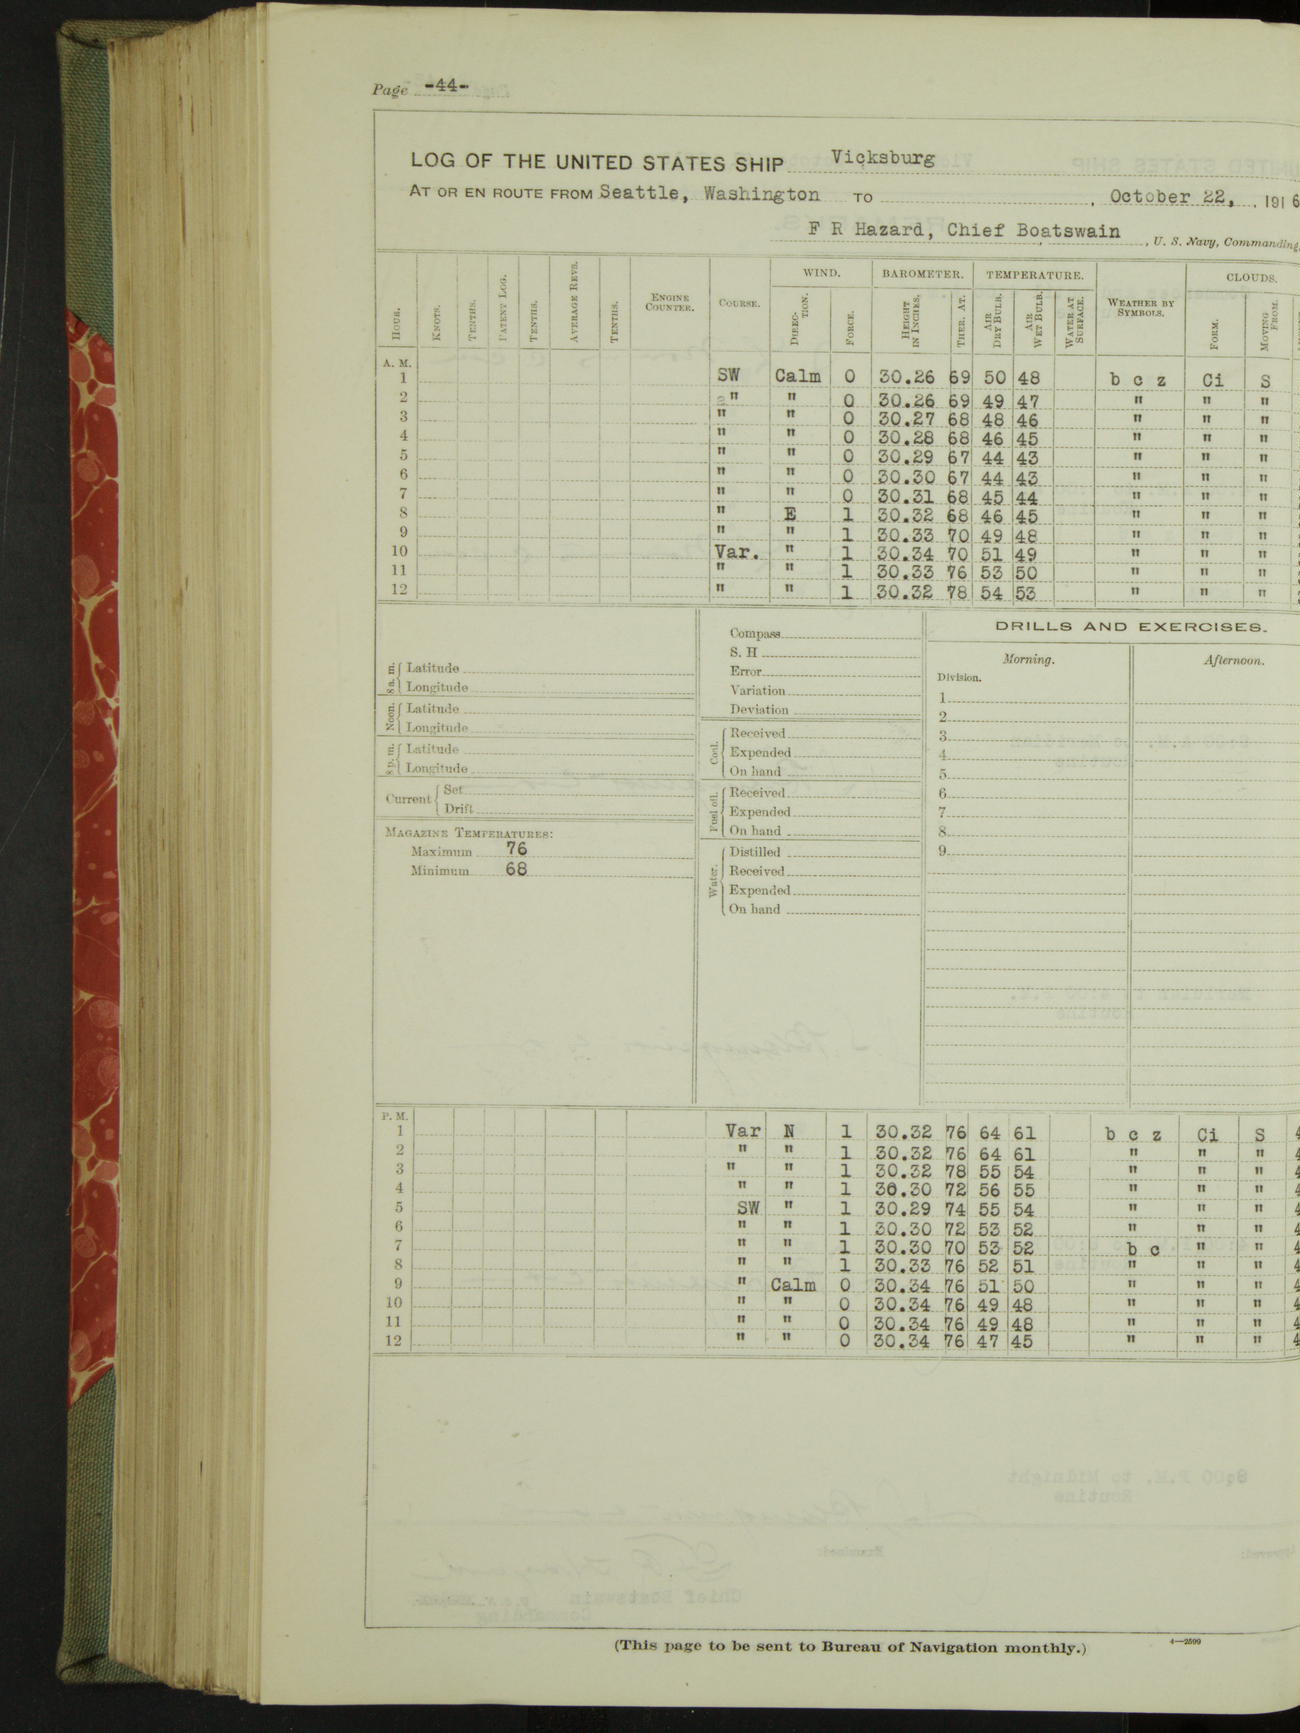 Page -44-
LOG OF THE UNITED STATES SHIP Vicksburg
AT OR EN ROUTE FROM Seattle, Washington TO , October 22, , 1916
F R Hazard, Chief Boatswain , U. S. Navy, Commanding,
HOUR. KNOTS. TENTHS. PATENT LOG. TENTHS. AVERAGE REVS. TENTHS. ENGINE COUNTER. COURSE. WIND. DIRECTION. FORCE. BAROMETER. HEIGHT IN INCHES. THER. AT. TEMPERATURE. AIR DRY BULB. AIR WET BULB. WATER AT SURFACE. WEATHER BY SYMBOLS. CLOUDS. FORM. MOVING FROM.
A. M.
1 SW Calm 0 30.26 69 50 48 b c z Ci S
2 " " 0 30.26 69 49 47 " " "
3 " " 0 30.27 68 48 46 " " "
4 " " 0 30.28 68 46 45 " " "
5 " " 0 30.29 67 44 43 " " "
6 " " 0 30.30 67 44 43 " " "
7 " " 0 30.31 68 45 44 " " "
8 " E 1 30.32 68 46 45 " " "
9 " " 1 30.33 70 49 48 " " "
10 Var. " 1 30.34 70 51 49 " " "
11 " " 1 30.33 76 53 50 " " "
12 " " 1 30.32 78 54 53 " " "
8 a. m. Latitude
Longitude
Noon. Latitude
Longitude
8 p. m. Latitude
Longitude
Current Set
Drift
MAGAZINE TEMPERATURES:
Maximum 76
Minimum 68
Compass
S. H
Error
Variation
Deviation
Coal. Received
Expended
On hand
Fuel oil. Received
Expended
On hand
Water. Distilled
Received
Expended
On hand
DRILLS AND EXERCISES.
Morning. Afternoon.
Division.
1
2
3
4
5
6
7
8
9
P. M.
1 Var N 1 30.32 76 64 61 b c z Ci S 4
2 " " 1 30.32 76 64 61 " " " 4
3 " " 1 30.32 78 55 54 " " " 4
4 " " 1 30.30 72 56 55 " " " 4
5 SW " 1 30.29 74 55 54 " " " 4
6 " " 1 30.30 72 53 52 " " " 4
7 " " 1 30.30 70 53 52 b c " " 4
8 " " 1 30.33 76 52 51 " " " 4
9 " Calm 0 30.34 76 51 50 " " " 4
10 " " 0 30.34 76 49 48 " " " 4
11 " " 0 30.34 76 49 48 " " " 4
12 " " 0 30.34 76 47 45 " " " 4
(This page to be sent to Bureau of Navigation monthly.)
4—2599